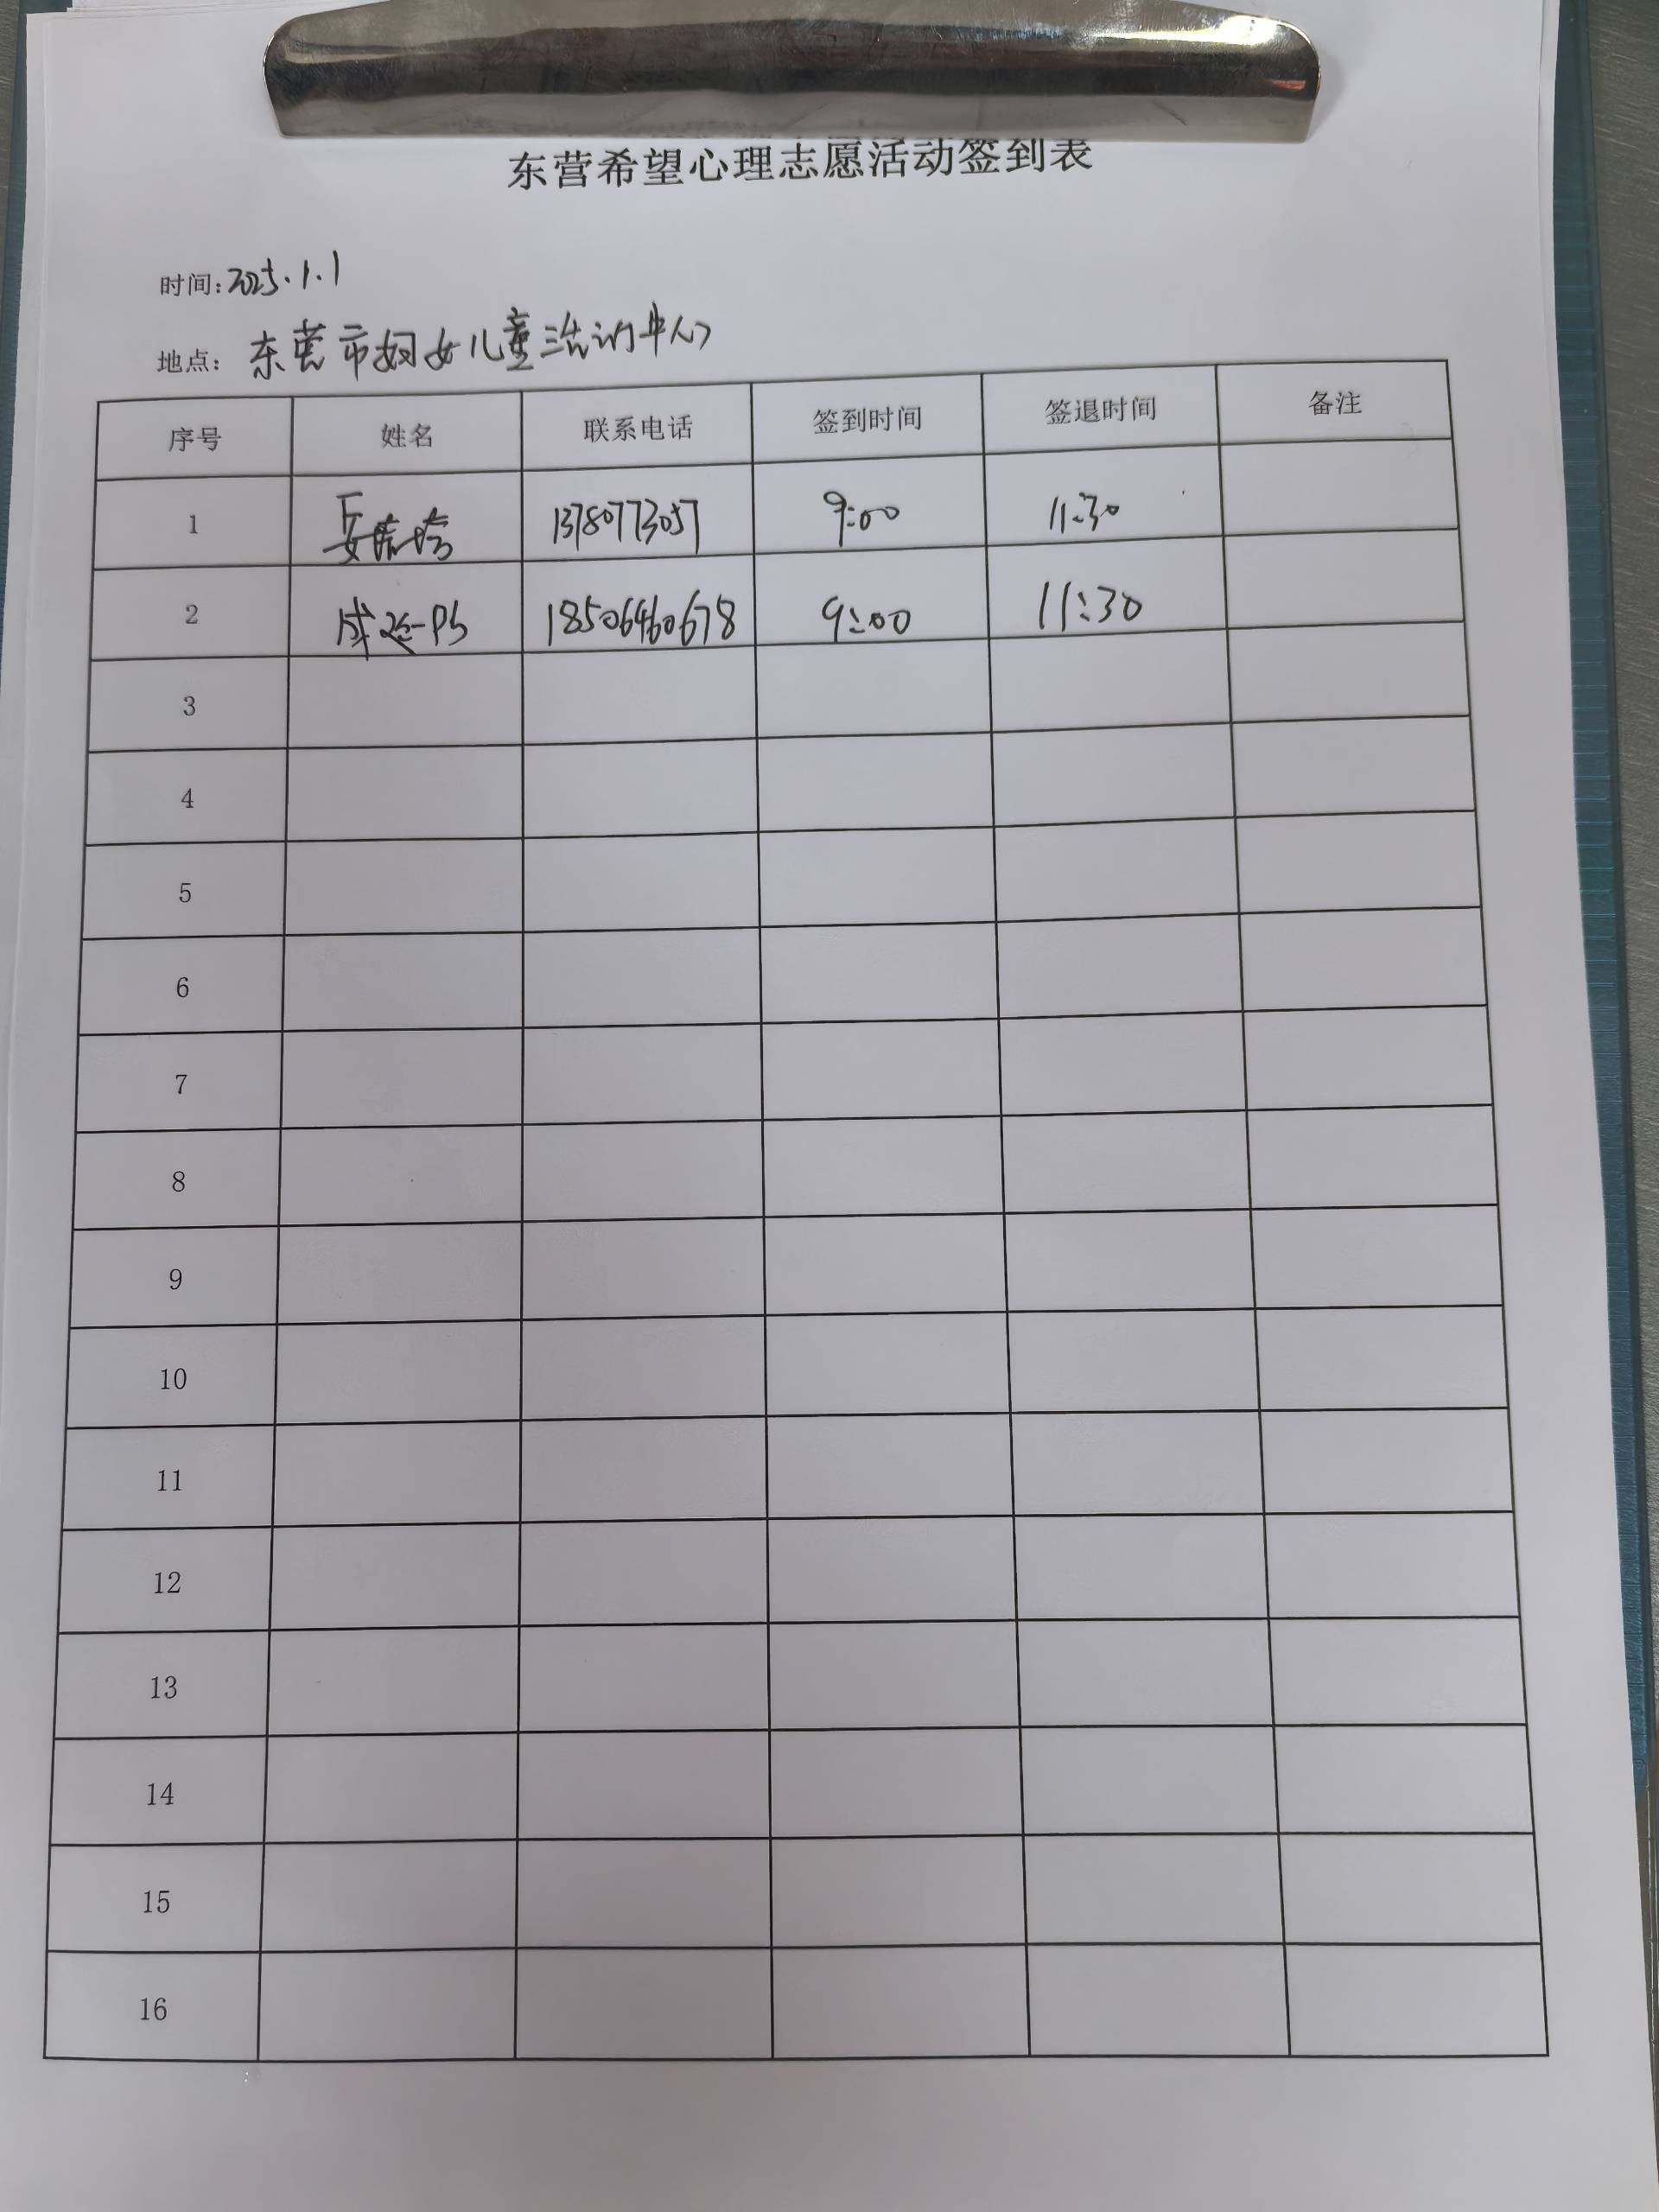 东营希望心理志愿活动签到表
时间:2025.1.1
地点: 东营市妇女儿童活动中心
序号 姓名 联系电话 签到时间 签退时间 备注
1 13780773057 9:00 11:30
2 18506460678 9:00 11:30
3
4
5
6
7
8
9
10
11
12
13
14
15
16